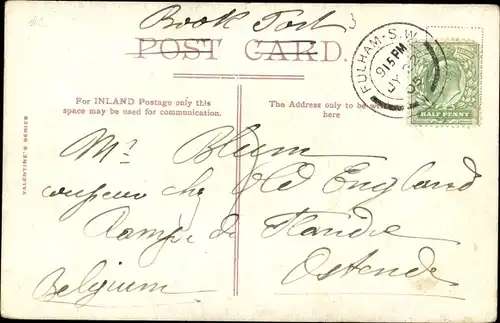 Book Post
POST CARD.
FULHAM·S.W
9 15 PM
JY
05
HALF PENNY
For INLAND Postage only this
space may be used for communication.
The Address only to be
here
VALENTINE'S SERIES
Mr Blum
Old England
Rampe de Flandre
Ostende
Belgium